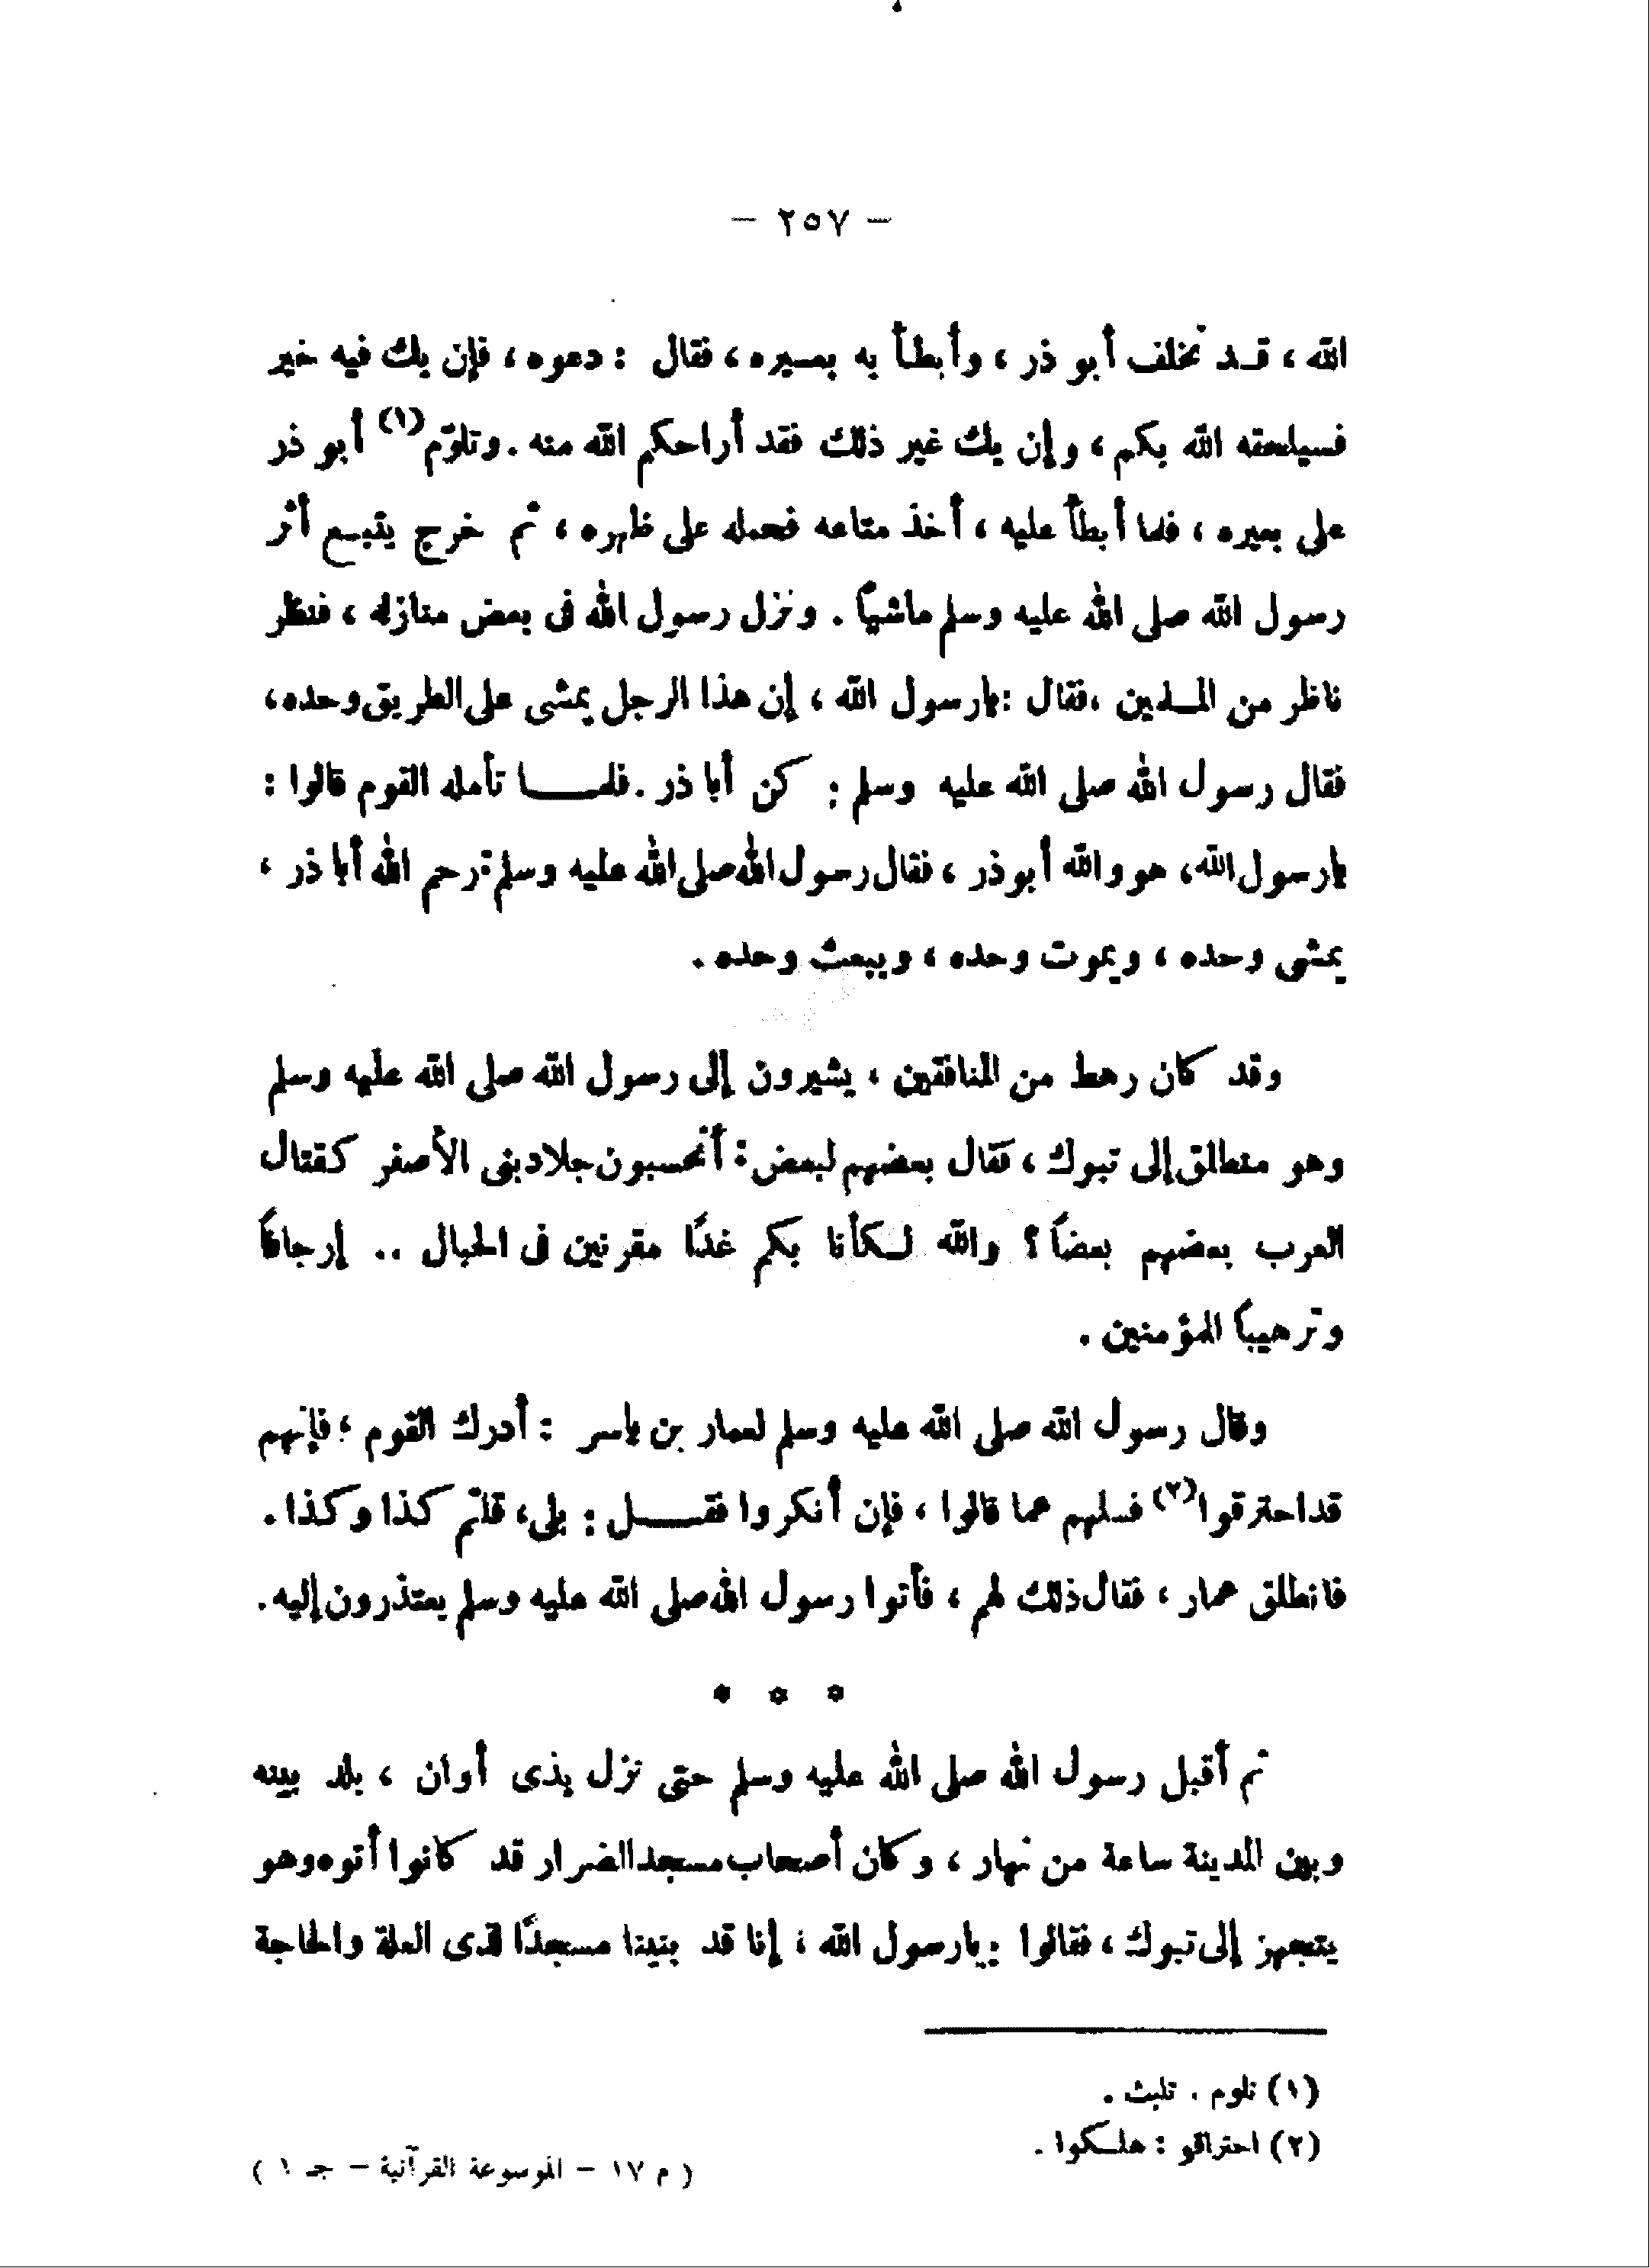 - ٢٥٧ -
الله ، قـد تخلف أبو ذر ، وأبطأ به بعيره ، فقال : دعوه ، فإن يك فيه خير
فسيلحقه الله بكم ، وإن يك غير ذلك فقد أراحكم الله منه . وتلوّم(١) أبو ذر
على بعيره ، فلما أبطأ عليه ، أخذ متاعه فحمله على ظهره ، ثم خرج يتبـع أثر
رسول الله صلى الله عليه وسلم ماشياً . ونزل رسول الله فى بعض منازله ، فنظر
ناظر من المسلمين ، فقال : يارسول الله ، إن هذا الرجل يمشى على الطريق وحده ،
فقال رسول الله صلى الله عليه وسلم : كن أبا ذر . فلمـــا تأمله القوم قالوا :
يارسول الله ، هو والله أبوذر ، فقال رسول الله صلى الله عليه وسلم : رحم الله أبا ذر ،
يمشى وحده ، ويموت وحده ، ويبعث وحده .
وقد كان رهط من المنافقين ، يشيرون إلى رسول الله صلى الله عليه وسلم
وهو منطلق إلى تبوك ، فقال بعضهم لبعض : أتحسبون جلاد بنى الأصفر كقتال
العرب بعضهم بعضاً ؟ والله لـكأنا بكم غداً مقرنين فى الحبال .. إرجافاً
وترهيباً للمؤمنين .
وقال رسول الله صلى الله عليه وسلم لعمار بن ياسر : أدرك القوم ، فإنهم
قد احترقوا(٢) فسلهم عما قالوا ، فإن أنكروا فقـــل : بلى ، قلتم كذا وكذا .
فانطلق عمار ، فقال ذلك لهم ، فأتوا رسول الله صلى الله عليه وسلم يعتذرون إليه .
* * *
ثم أقبل رسول الله صلى الله عليه وسلم حتى نزل بذى أوان ، بلد بينه
وبين المدينة ساعة من نهار ، وكان أصحاب مسجد الضرار قد كانوا أتوه وهو
يتجهز إلى تبوك ، فقالوا : يارسول الله ، إنا قد بنينا مسجداً لذى العلة والحاجة
(١) تلوم . تلبث .
(٢) احتراقو : هلـكوا .
( م ١٧ - الموسوعة القرآنية - جـ ١ )